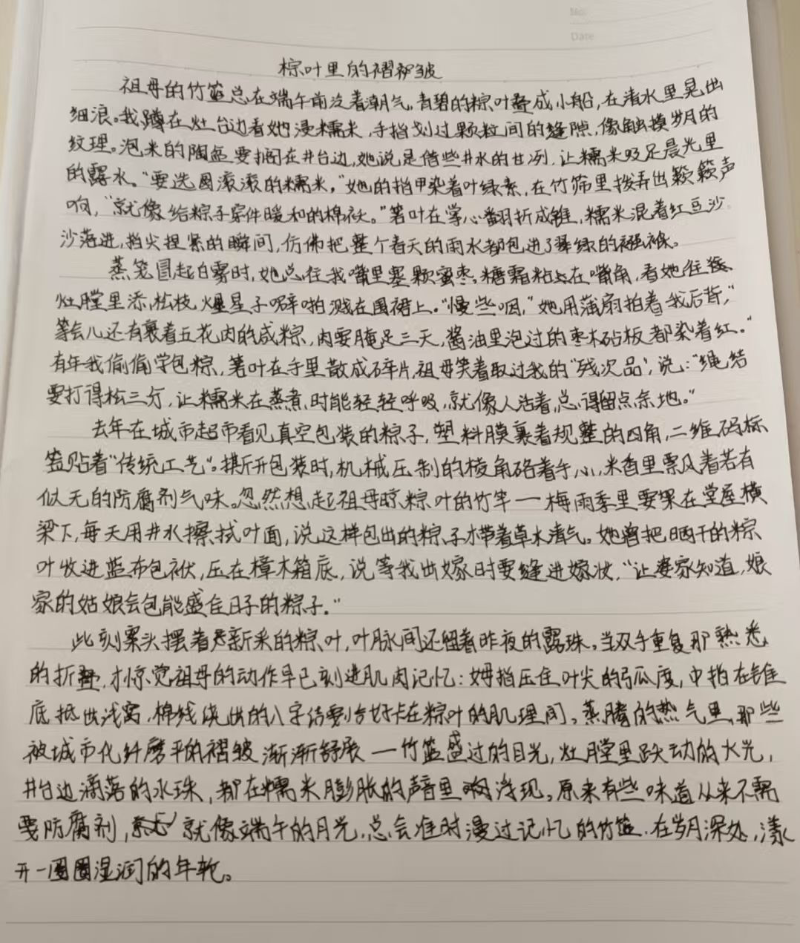 No.
Date
粽叶里的褶皱
祖母的竹篮总在端午前泛着潮气。青碧的粽叶叠成小船,在清水里晃出
细浪。我蹲在灶台边看她浸糯米,手指划过颗粒间的缝隙,像触摸岁月的
纹理。泡米的陶盆要搁在井台边,她说是借些井水的甘冽,让糯米吸足晨光里
的露水。“要选圆滚滚的糯米,”她的指甲染着叶绿素,在竹筛里拨弄出簌簌声
响,“就像给粽子穿件暖和的棉袄。”箬叶在掌心翻折成锥,糯米混着红豆沙
沙落进,指尖捏紧的瞬间,仿佛把整个春天的雨水都包进了翠绿的襁褓。
蒸笼冒起白雾时,她总往我嘴里塞颗蜜枣。糖霜粘上在嘴角,看她往
灶膛里添松枝,火星子噼啪溅在围裙上。“慢些咽,”她用蒲扇拍着我后背,”
等会儿还有裹着五花肉的咸粽,肉要腌足三天,酱油里泡过的枣木砧板都染着红。”
有年我偷偷学包粽,箬叶在手里散成碎片,祖母笑着取过我的“残次品”,说:“绳结
要打得松三分,让糯米在蒸煮时能轻轻呼吸,就像人活着,总得留点余地。”
去年在城市超市看见真空包装的粽子,塑料膜裹着规整的四角,二维码标
签贴着“传统工艺”。撕开包装时,机械压制的棱角硌着手心,米香里飘着若有
似无的防腐剂气味。忽然想起祖母晾粽叶的竹竿一梅雨季里要架在堂屋横
梁下,每天用井水擦拭叶面,说这样包出的粽子才带着草木清气。她曾把晒干的粽
叶收进蓝布包袱,压在樟木箱底,说等我出嫁时要缝进嫁妆,“让婆家知道,娘
家的姑娘会包能盛住日子的粽子。”
此刻案头摆着新采的粽叶,叶脉间还留着昨夜的露珠。当双手重复那熟悉
的折叠,才惊觉祖母的动作早已刻进肌肉记忆:拇指压住叶尖的弧度,中指在锥
底抵出浅窝,棉线绕出的八字结要恰好卡在粽叶的肌理间。蒸腾的热气里,那些
被城市化纤磨平的褶皱渐渐舒展一竹篮盛过的月光,灶膛里跃动的火光,
井台边滴落的水珠,都在糯米膨胀的声音里浮现。原来有些味道从来不需
要防腐剂,就像端午的月光,总会准时漫过记忆的竹篮,在岁月深处,漾
开一圈圈湿润的年轮。